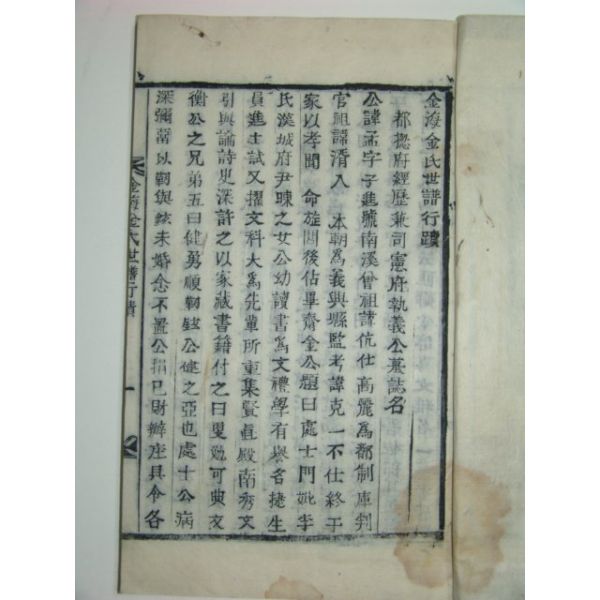 金海金氏世譜行蹟
都摠府經歷兼司憲府執義公墓誌名
公諱孟字子進號南溪曾祖諱伉仕高麗爲都制庫判
官祖諱湑入 本朝爲義興縣監考諱克一不仕終于
家以孝聞 命旌閭後佔畢齋金公題曰處士門妣李
氏漢城府尹暕之女公幼讀書爲文禮學有譽名捷生
員進士試又擢文科大爲先輩所重集賢直殿南秀文
引與論詩史深許之以家藏書籍付之曰興勉可典文
衡公之兄弟五曰健勇順靭鉉公健之亞也處士公病
深彌留以靭與鉉未婚念不置公捐己財辦座具令各
金海金氏世譜行蹟 一